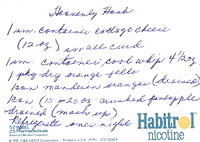 Heavenly Hash
1 sm. container cottage cheese
(12 oz) small curd
1 sm. container cool whip 4½ oz.
1 pkg dry orange jello
1 can mandarin oranges (drained)
1 can (15 or 20 oz crushed pineapple
drained (mash up)
Refrigerate over night
Habitrol
nicotine
Pharmaceuticals